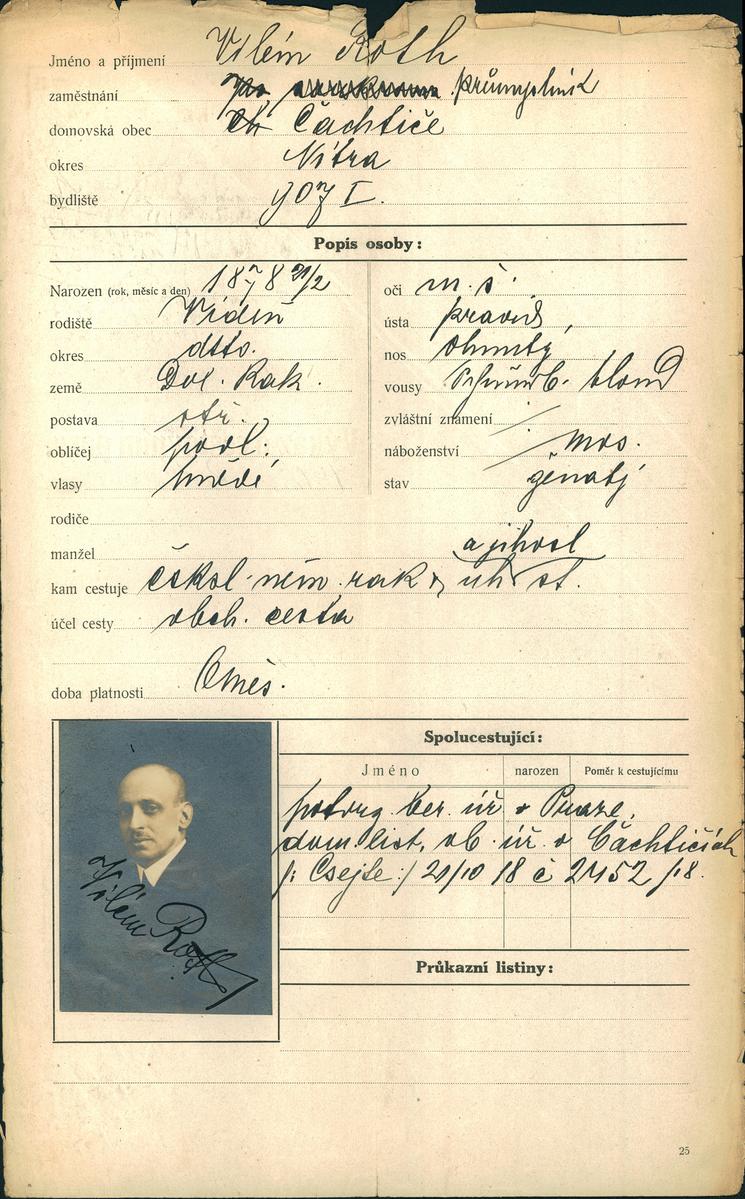 Jméno a příjmení Vilém Roth
zaměstnání průmyslník
domovská obec Čachtice
okres Nitra
bydliště 907 I.
Popis osoby:
Narozen (rok, měsíc a den) 1878 21/2
rodiště Vídeň
okres dtto.
země Dol. Rak.
postava stř.
obličej podl.
vlasy hnědé
rodiče
manžel
oči m. š.
ústa pravid.
nos
vousy blond
zvláštní znamení
náboženství mos.
stav ženatý
a jihosl
kam cestuje čsksl. něm. rak. uh st.
účel cesty obch. cesta
doba platnosti
Spolucestující:
Jméno narozen Poměr k cestujícímu
potvrz. ber. úř v Praze,
dom. list, ob. úř. v Čachticích
/: Csejte :/ 21/10 18 č 2452 /18.
Průkazní listiny:
Vilém Roth
25